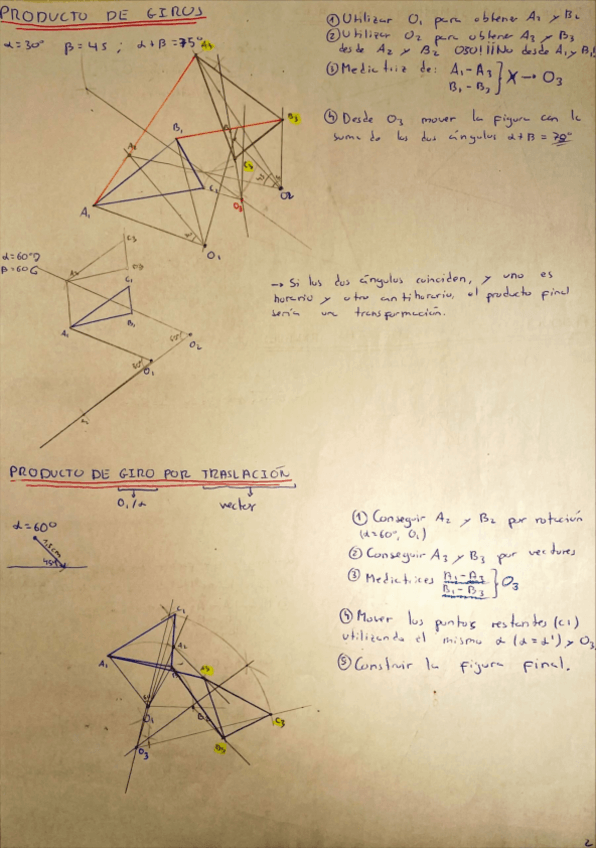 PRODUCTO DE GIROS
α=30° β=45 ; α+β=75°
① Utilizar O1 para obtener A2 y B2
② Utilizar O2 para obtener A3 y B3
desde A2 y B2 OJO!!! No desde A1 y B1!
③ Mediatriz de: A1-A3
B1-B3 } X → O3
④ Desde O3 mover la figura con la
suma de los dos ángulos α+β = 
A3
B1
B3
A2
C1
C3
A1
O3
O2
O1
α=60°
β=60G
C3
B3
A3
C1
B1
A1
O2
60°
60°
O1
→ Si los dos ángulos coinciden, y uno es
horario y otro antihorario, el producto final
sería una transformación.
PRODUCTO DE GIRO POR TRASLACIÓN
O1/α vector
α=60°
45°
① Conseguir A2 y B2 por rotación
(α=60°, O1)
② Conseguir A3 y B3 por vectores
③ Mediatrices B1-B3
B1-B3 } O3
④ Mover los puntos restantes (C1)
utilizando el mismo α (α=α') y O3
⑤ Construir la figura final.
C1
A1
A2
A3
O1
B2
C3
O3
B3
2